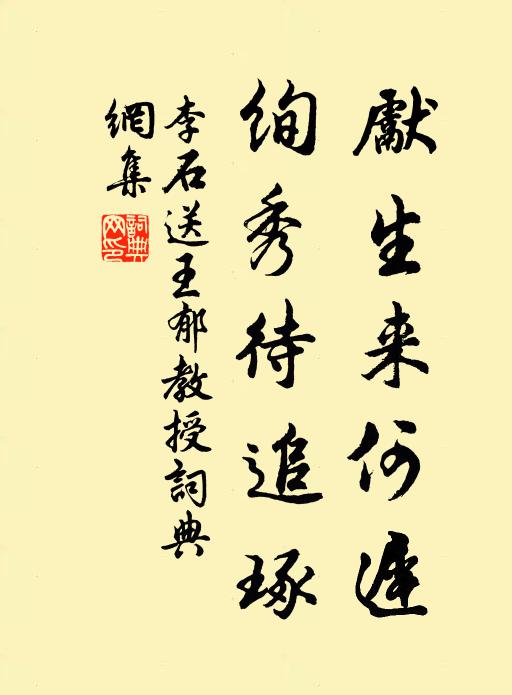 獻生来何遲
絢秀待追琢
李石送王郁教授詞典
網集
詞典
网印